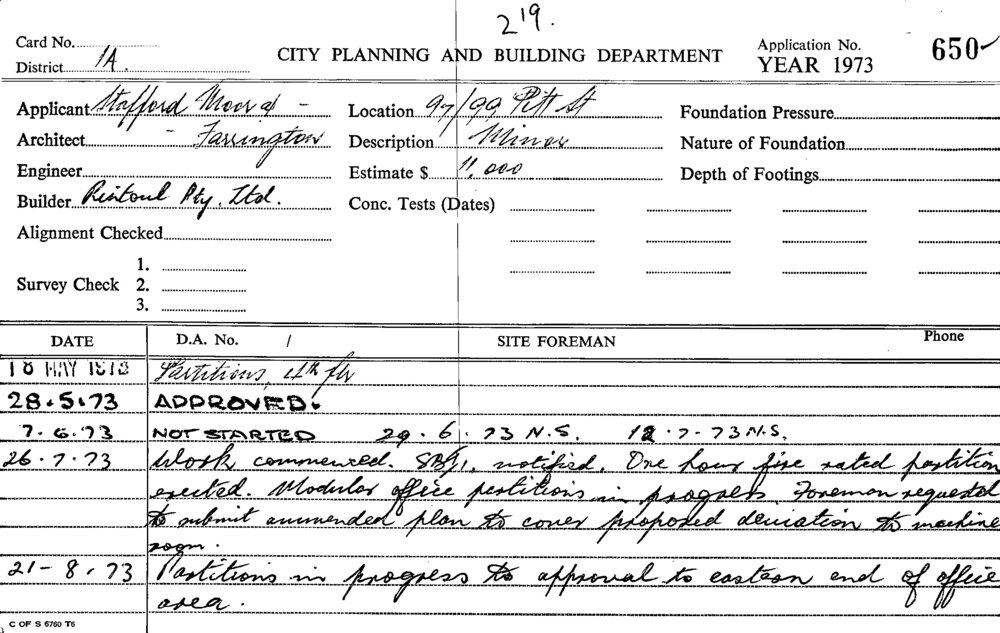 219.
Card No.
District 1A.
CITY PLANNING AND BUILDING DEPARTMENT
Application No. 650
YEAR 1973
Applicant Stafford Moor &
Architect - Farrington
Engineer
Builder Rintoul Pty. Ltd.
Alignment Checked
Survey Check 1.
2.
3.
Location 97/99 Pitt St
Description Minor
Estimate $ 11,000
Conc. Tests (Dates)
Foundation Pressure
Nature of Foundation
Depth of Footings
DATE D.A. No. / SITE FOREMAN Phone
18 MAY 1973 Partitions, 4th flr
28.5.73 APPROVED.
7.6.73 NOT STARTED 29.6.73 N.S. 12.7-73 N.S.
26.7.73 Work commenced. notified. One hour fire rated partition
erected. Modular office partitions in progress. Foreman requested
to submit ammended plan to cover proposed deviation to machine
room.
21-8.73 Partitions in progress to approval to eastern end of office
area.
C OF S 6760 T6